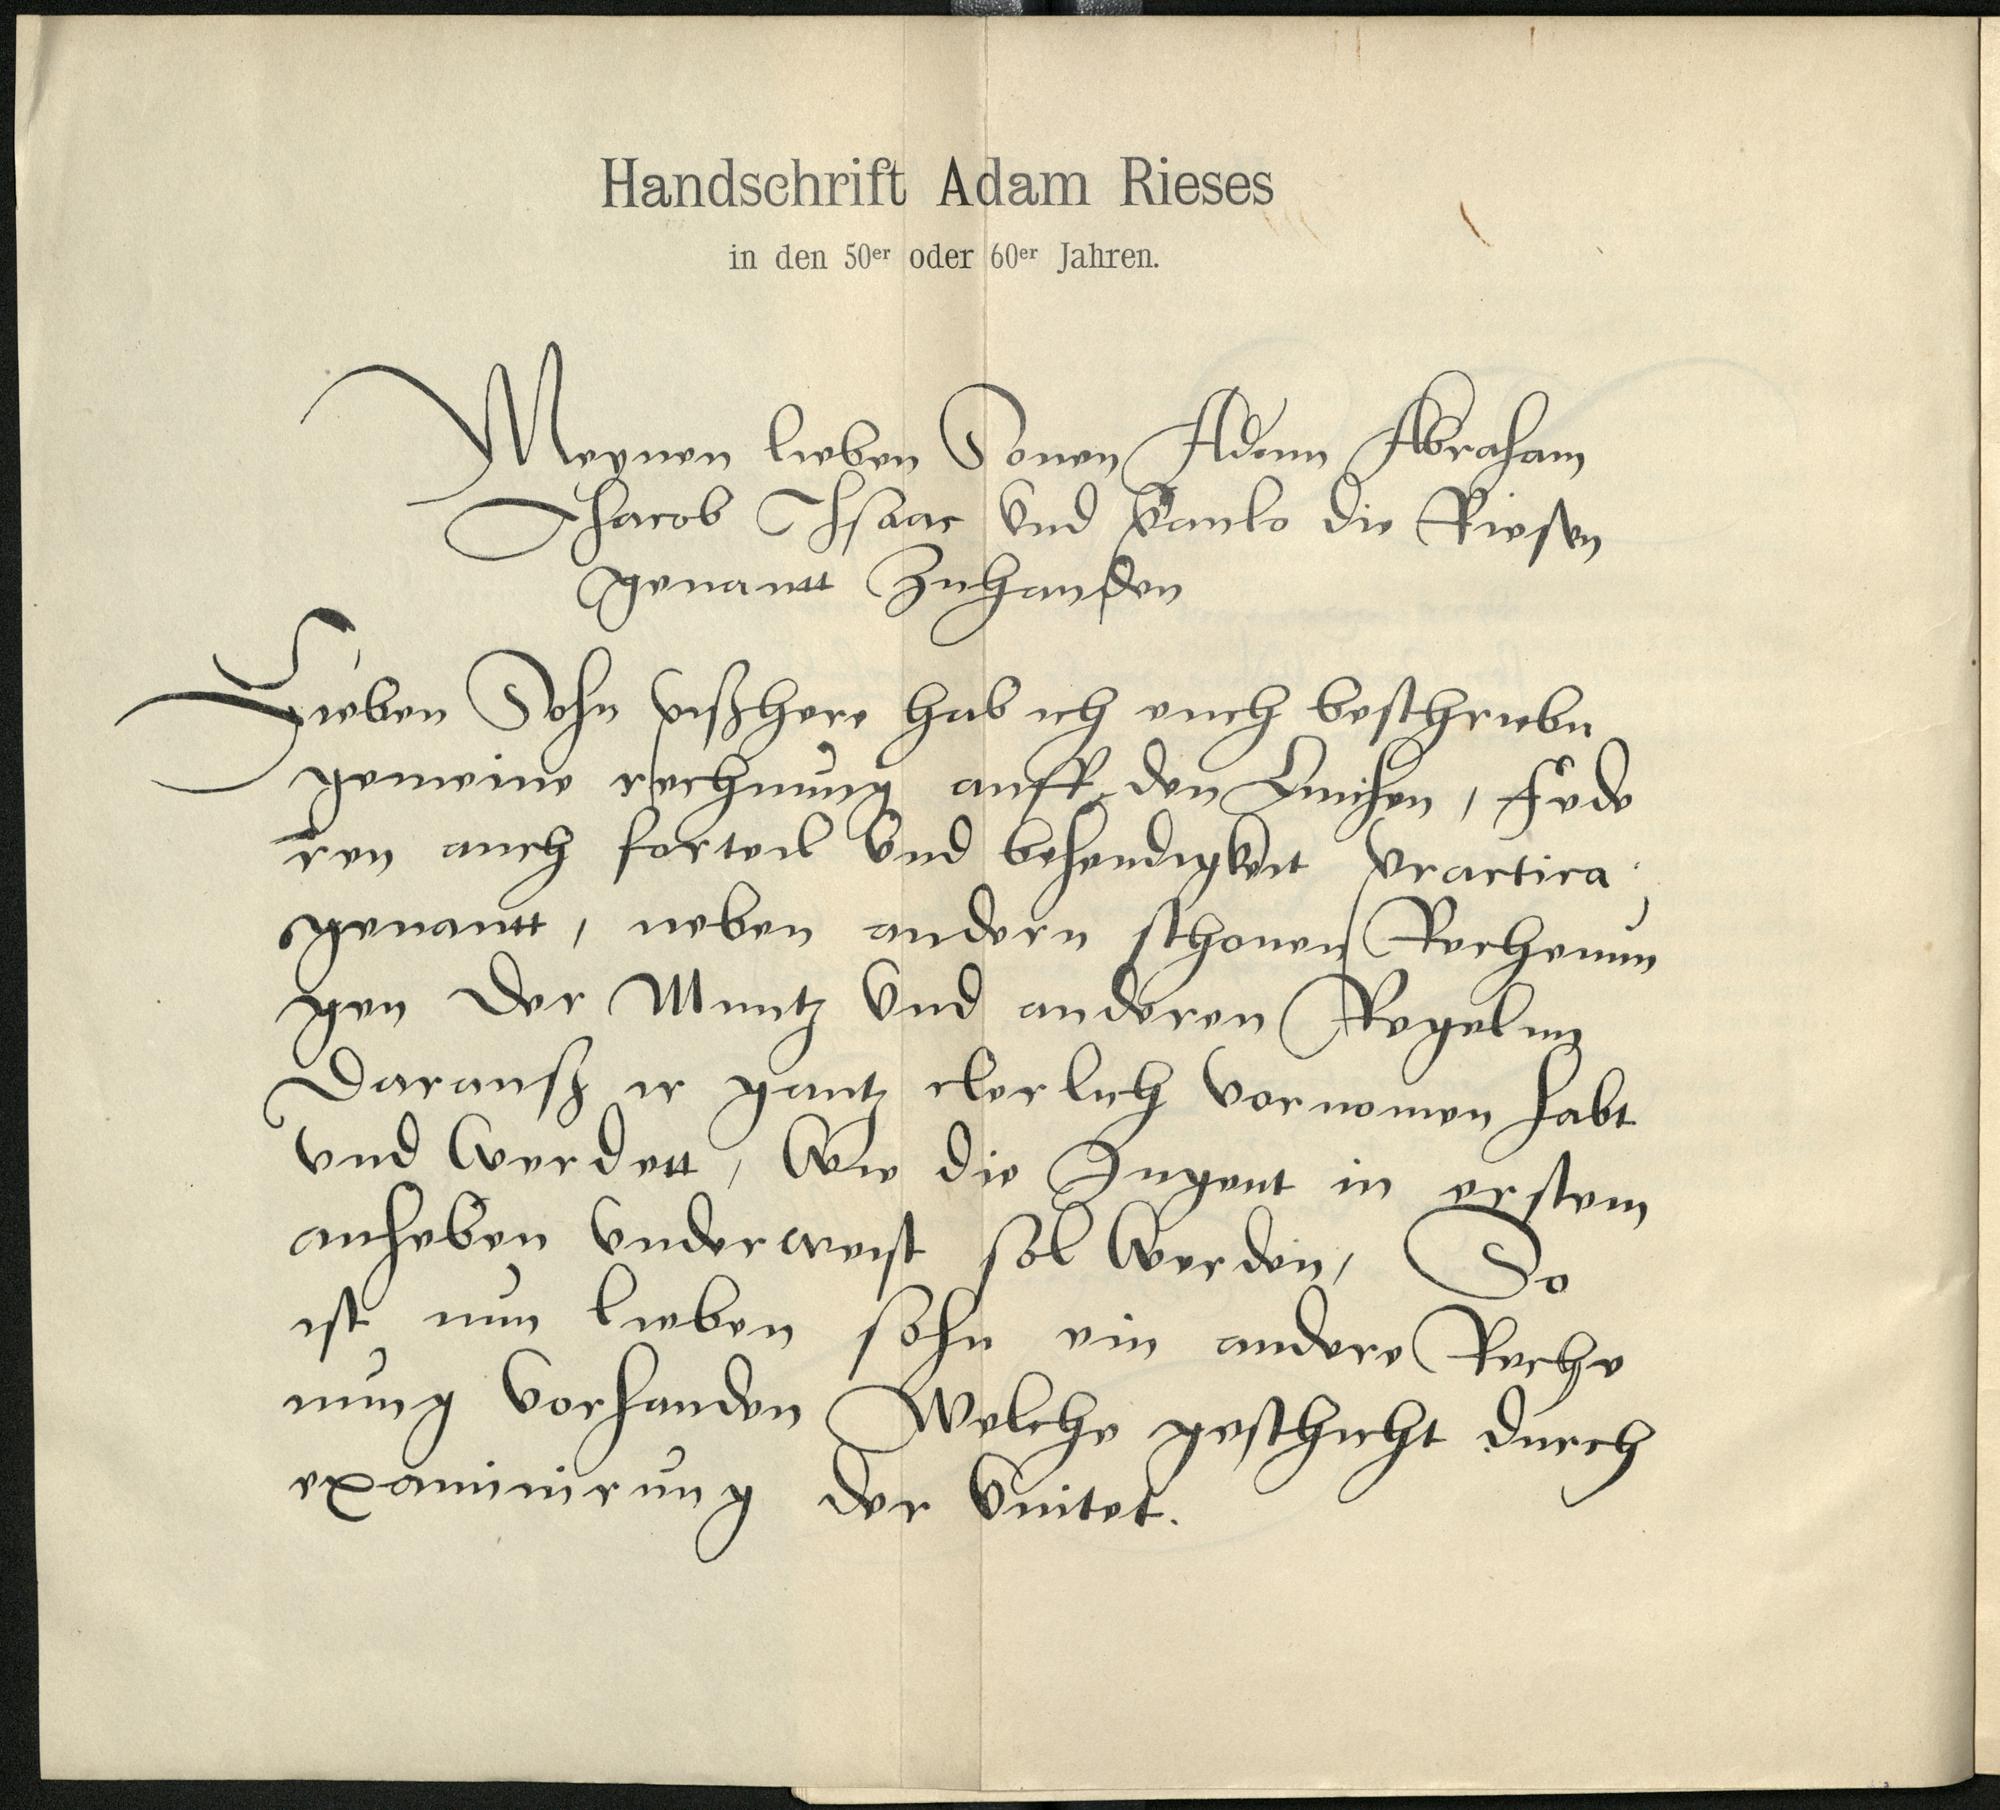 Handschrift Adam Rieses
in den 50er oder 60er Jahren.
Meynen lieben Sonen Adam Abraham
Jhacob Jhsaac Vnd Paulo die Riesen
genantt Zuhanden
Lieben Sohn pißhere hab ich euch beschriebn
gemeine rechnung auff den Linihen, Fede
ren auch forteil Vnd behendigkeit practica
genantt, neben andern schonen Rechenun
gen der Muntz Vnd anderen Regeln
Darauß ir gantz clerlich Vornomen habt
Vnd Werdett, Wie die Jugent in erstem
anheben Vnderweist sol Werden, So
ist nun lieben sohn ein andere Reche
nung Vorhanden Welche geschicht durch
examinirung der Vnitet.